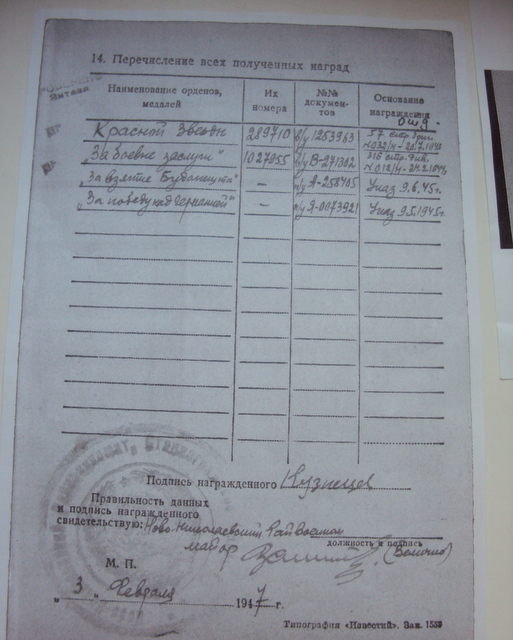 14. Перечисление всех полученных наград
Наименование орденов, медалей Их номера №№ документов Основание награждения
Красной Звезды 289710 1253963 57 стр.
"За боевые заслуги" 1027955 В-271302 316 стр.
"За взятие Будапешта" — А-258405 Указ 9.6.45г.
"За победу над Германией" — Я-0073921 Указ 9.5.1945г.
Подпись награжденного Кузнецов
Правильность данных
и подпись награжденного
свидетельствую: Ново-Николаевский Райвоенком
должность и подпись
майор
М. П.
" 3 " Февраля 1947 г.
Типография «Известий». Зак. 1559